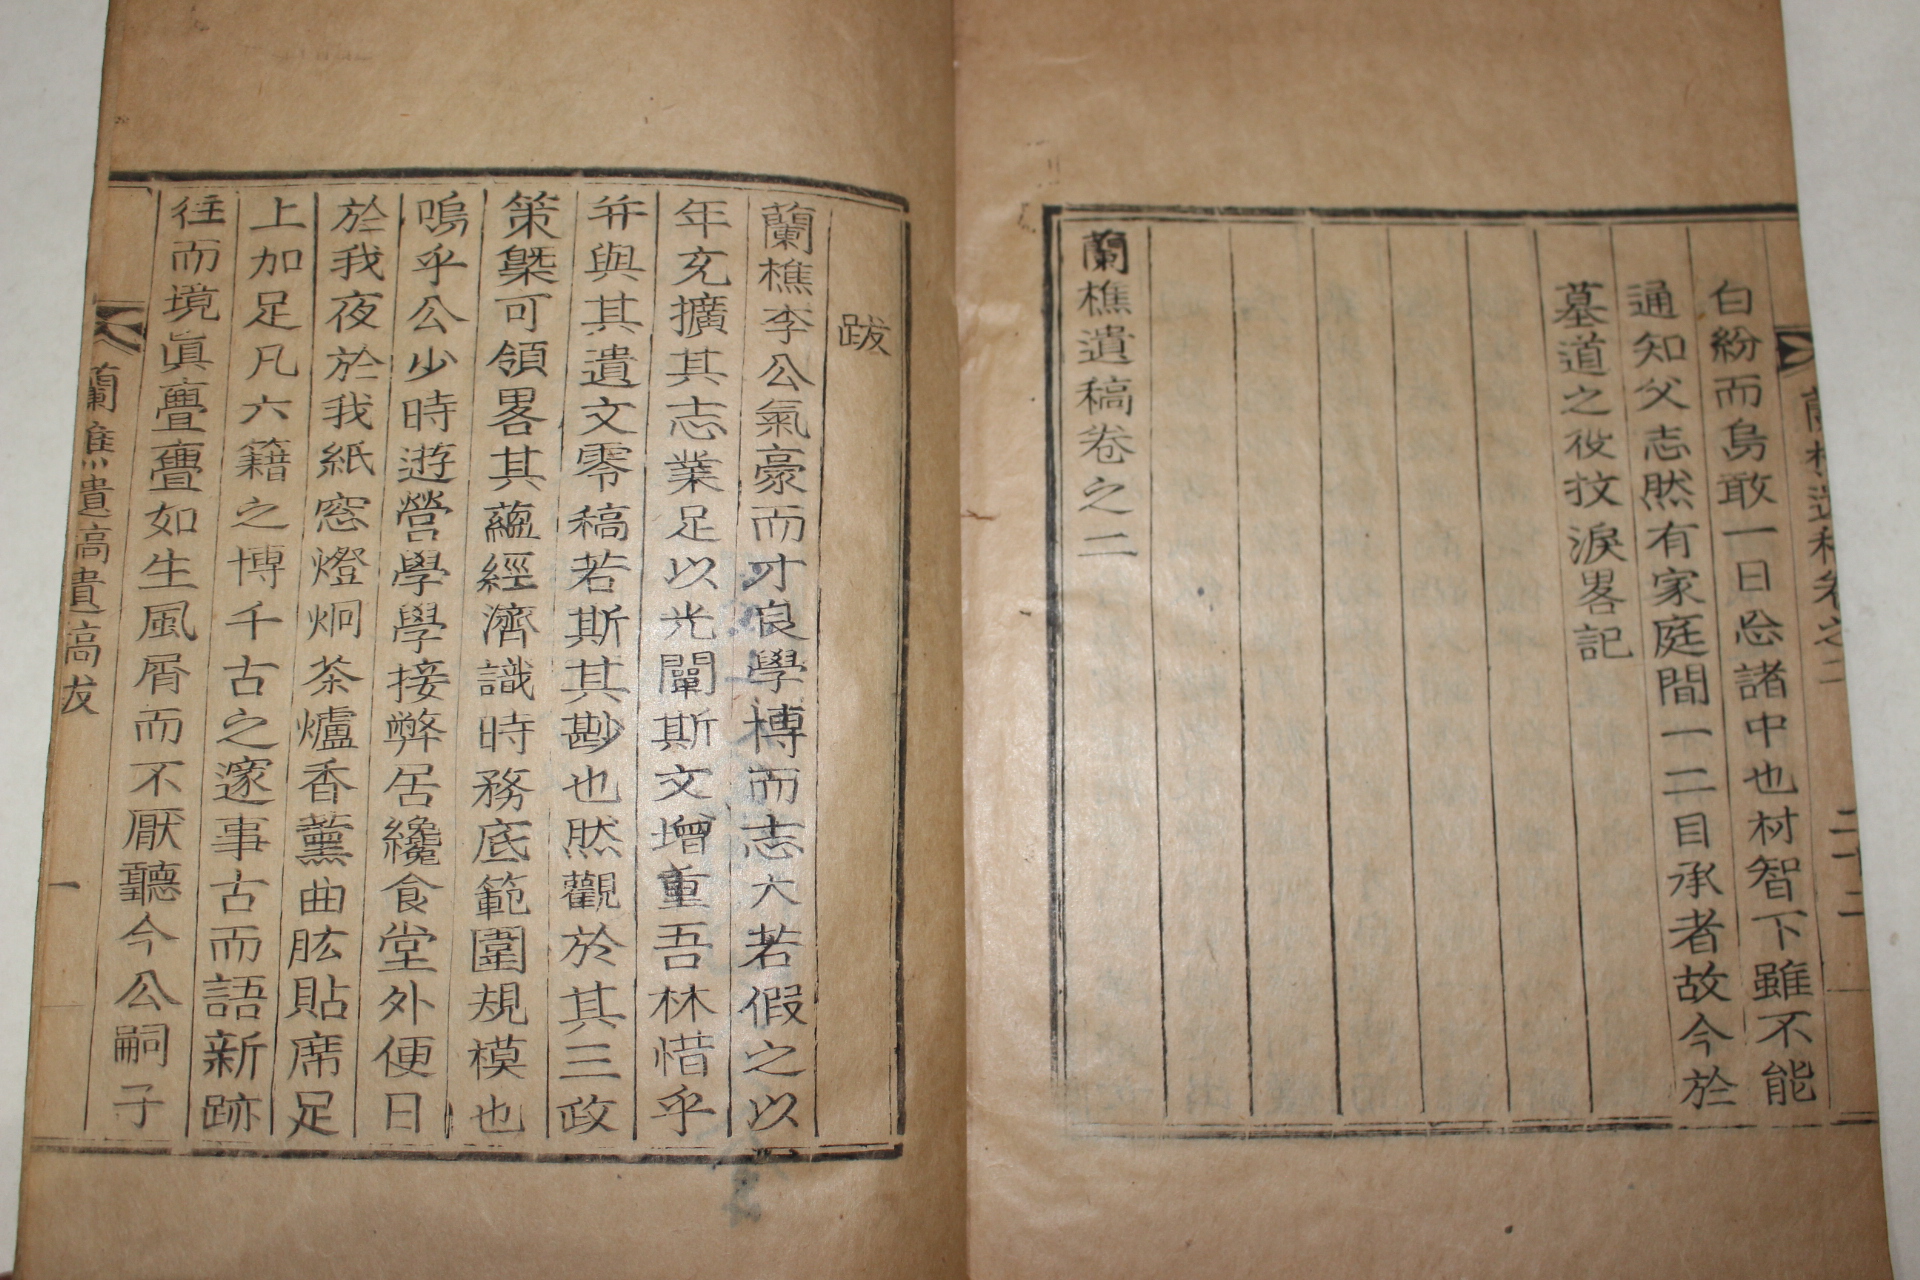 白紛而烏敢一日忘諸中也材智下雖不能
通知父志然有家庭間一二目承者故今於
墓道之役抆淚畧記
蘭樵遺稿卷之二
蘭樵遺稿卷之二
二十二
跋
蘭樵李公氣豪而才良學博而志大若假之以
年充擴其志業足以光闡斯文增重吾林惜乎
幷與其遺文零稿若斯其尠也然觀於其三政
策槩可領畧其蘊經濟識時務底範圍規模也
嗚乎公少時遊營學學接弊居纔食堂外便日
於我夜於我紙窓燈炯茶爐香薰曲肱貼席足
上加足凡六籍之博千古之邃事古而語新跡
往而境眞亹亹如生風屑而不厭聽今公嗣子
蘭樵遺稿遺稿跋
一